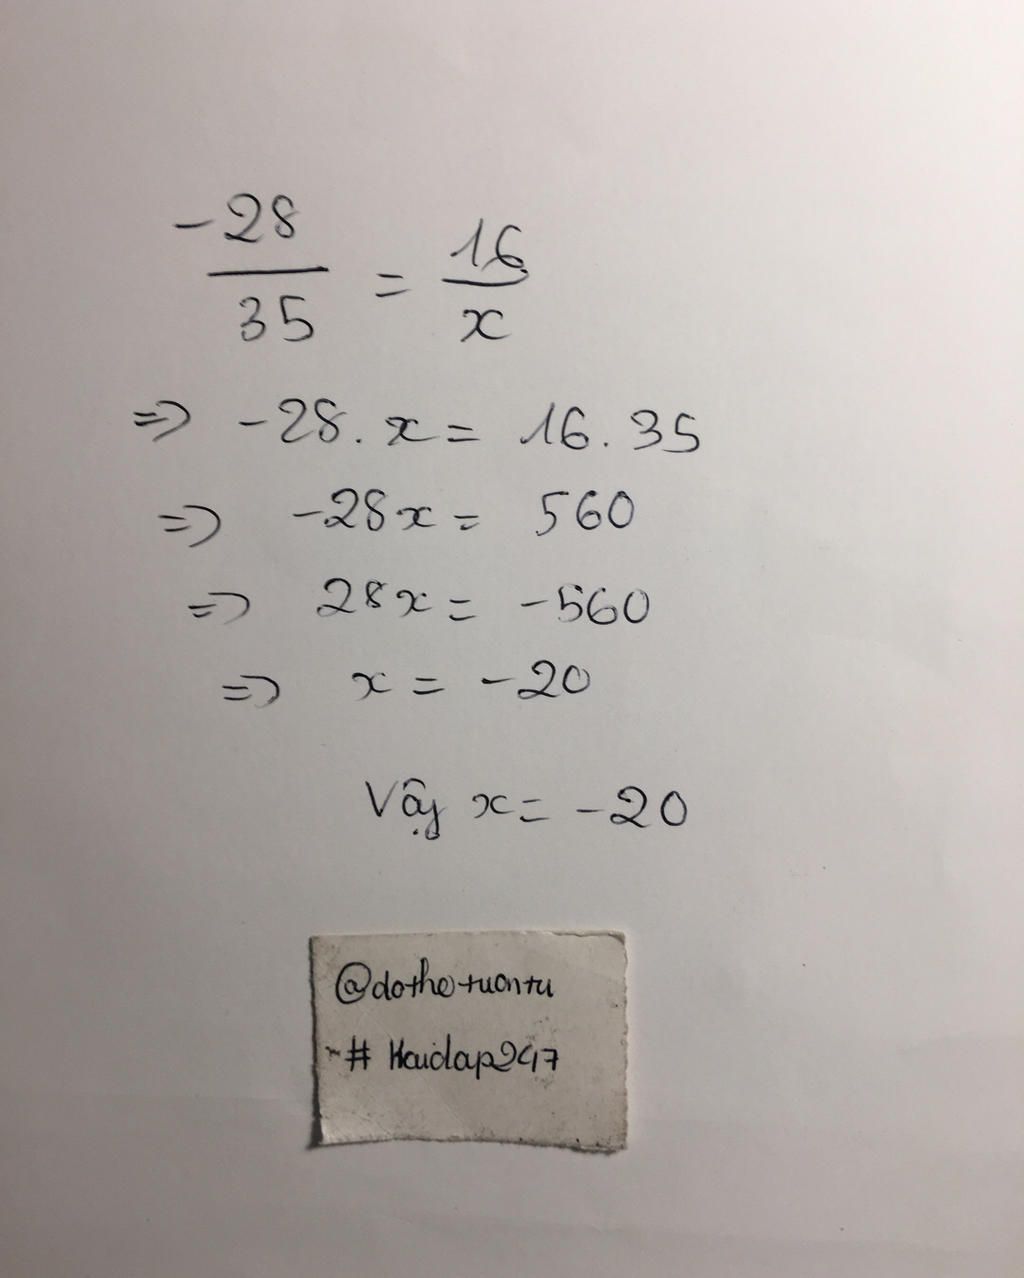 -28/35 = 16/x
=> -28. x = 16. 35
=> -28x = 560
=> 28x = -560
=> x = -20
Vậy x = -20
@dothetuantu
# Hoidap247